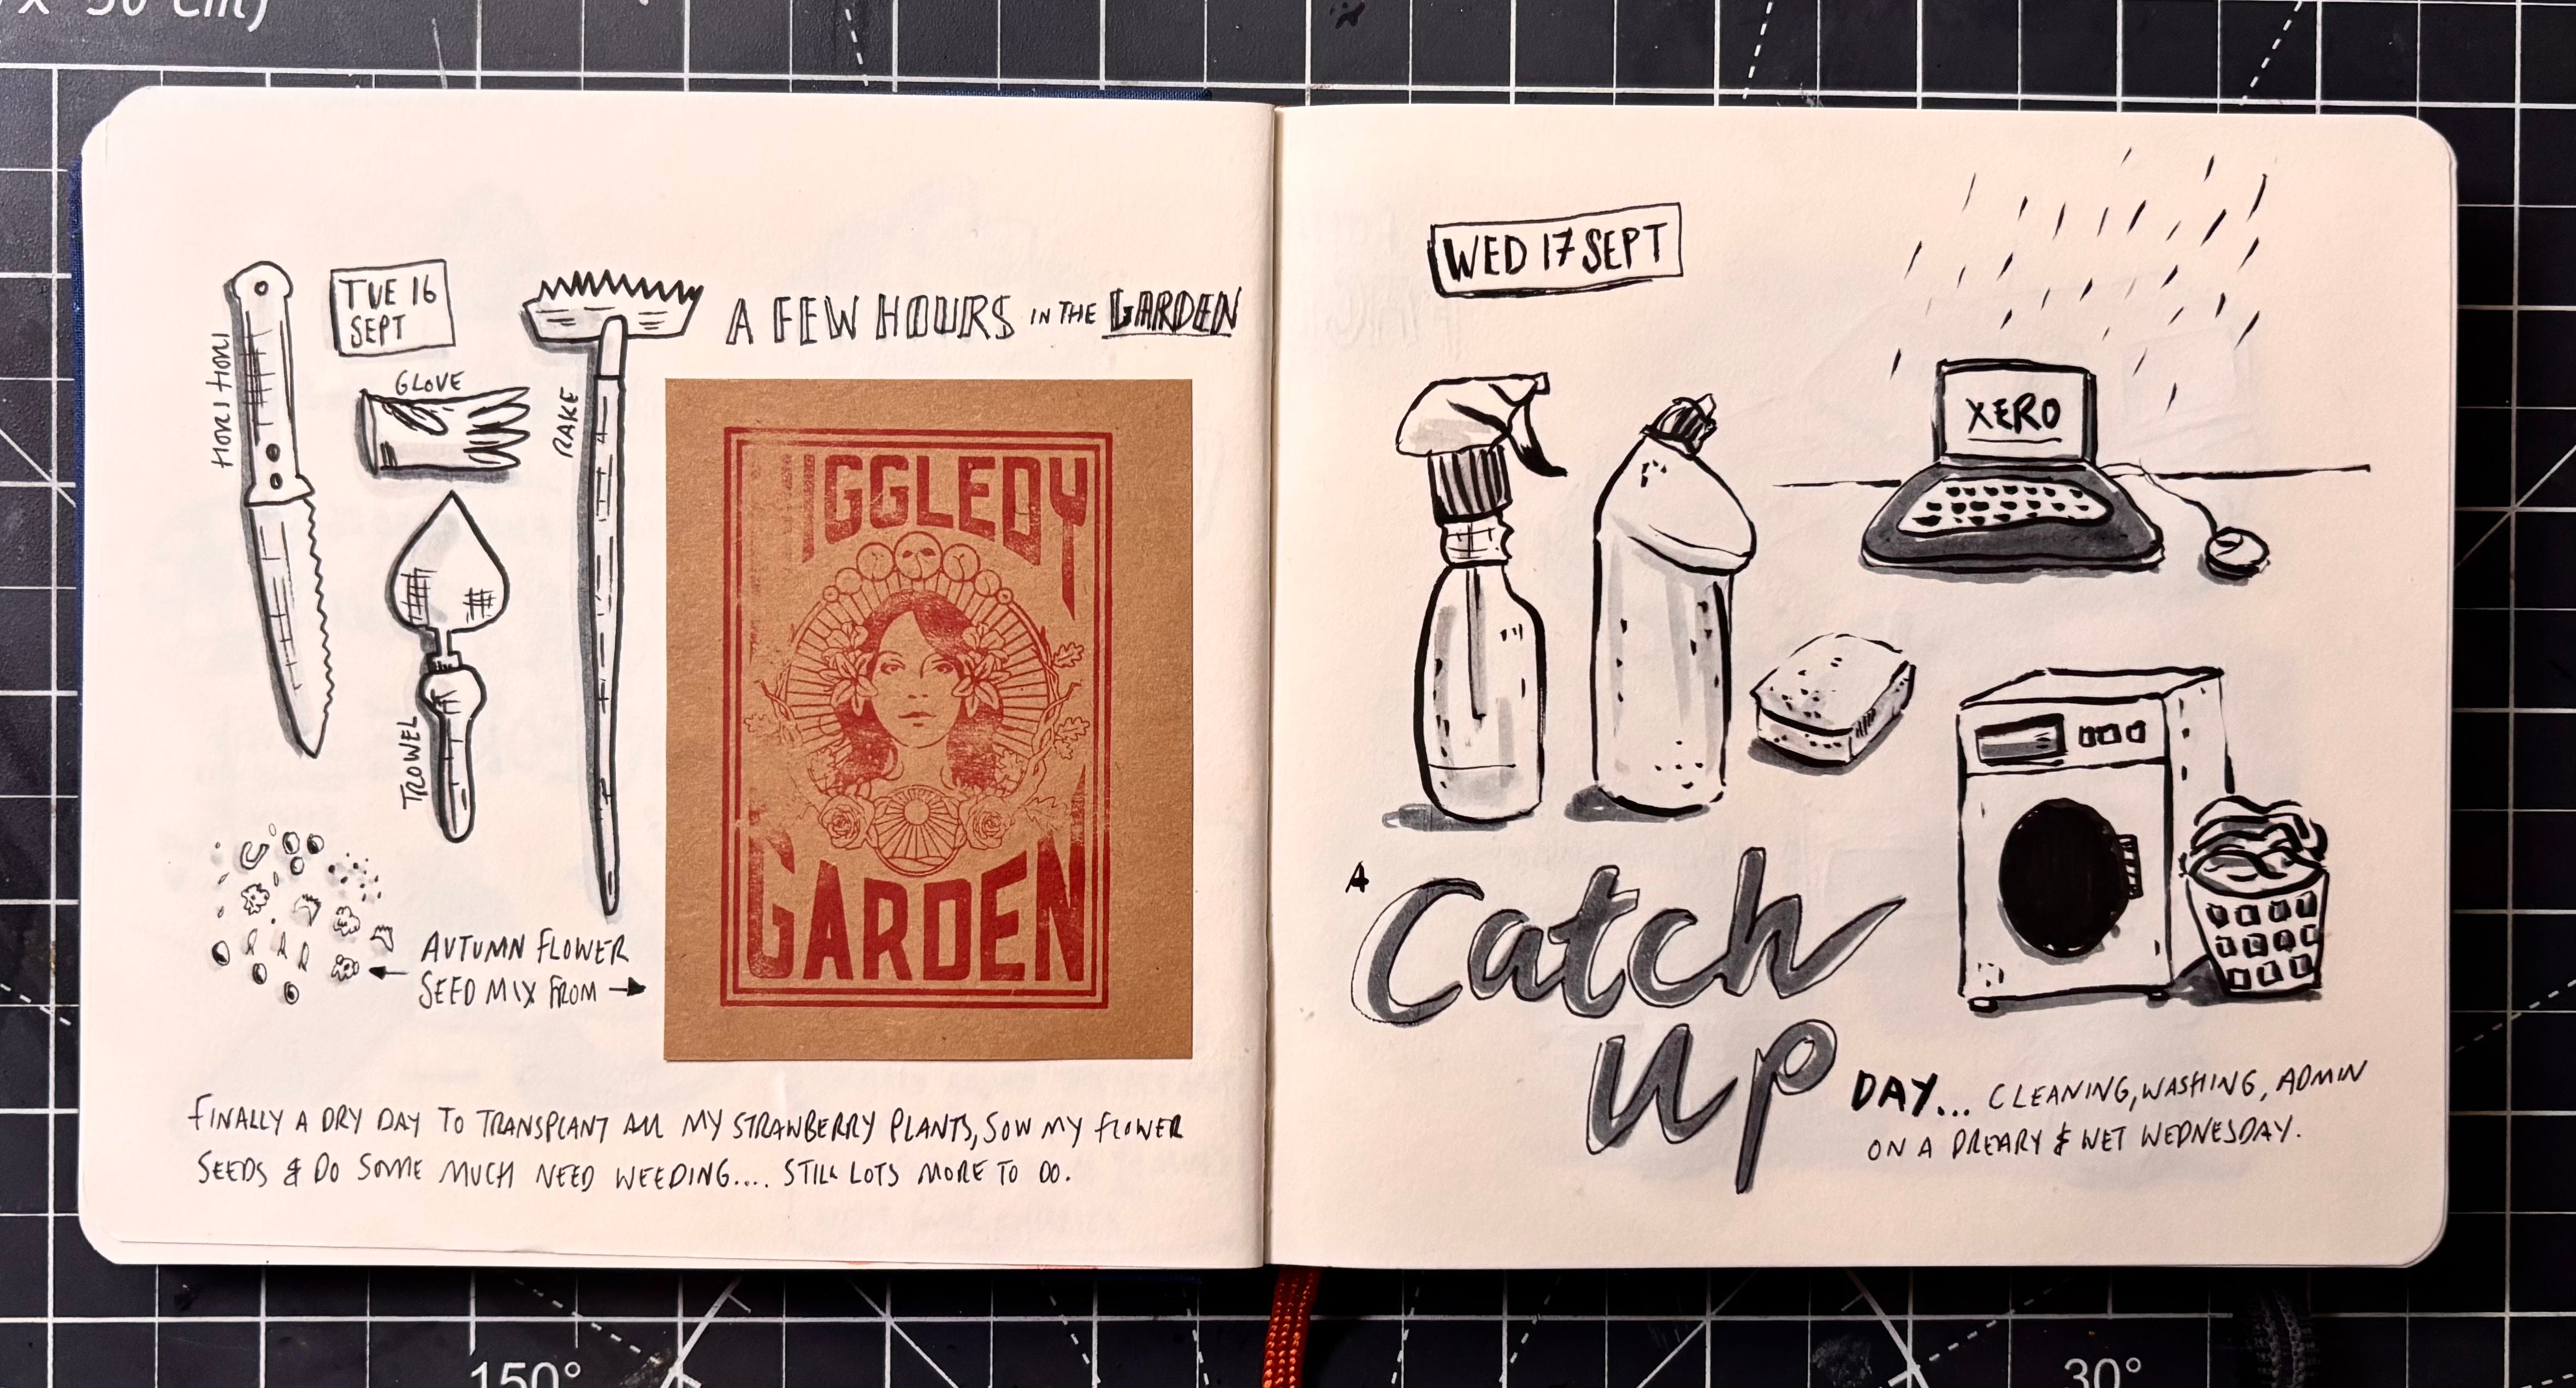 X 30 cm)
TUE 16
SEPT
HORI HORI
GLOVE
RAKE
TROWEL
A FEW HOURS IN THE GARDEN
IGGLEDY
GARDEN
AUTUMN FLOWER
SEED MIX FROM
FINALLY A DRY DAY TO TRANSPLANT ALL MY STRAWBERRY PLANTS, SOW MY FLOWER
SEEDS & DO SOME MUCH NEED WEEDING.... STILL LOTS MORE TO DO.
WED 17 SEPT
XERO
A Catch
up
DAY... CLEANING, WASHING, ADMIN
ON A DREARY & WET WEDNESDAY.
150°
30°